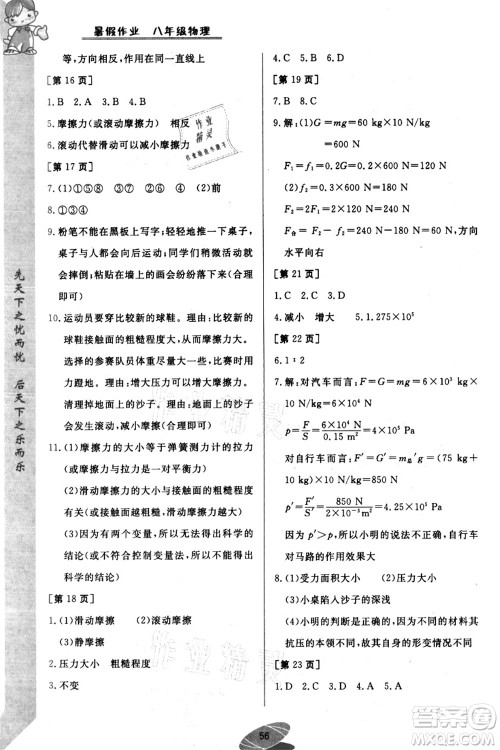 暑假作业 八年级物理
等，方向相反、作用在同一直线上
[第 16 页]
1. B 2. A 3. B 4. B
5. 摩擦力(或滚动摩擦力) 相反
6. 滚动代替滑动可以减小摩擦力
[第 17 页]
7. (1)①⑤⑧ (2)⑥ (3)前
8. ①③④
9. 粉笔不能在黑板上写字；轻轻地推一下桌子，
桌子与人都会向后运动；稍微活动一下就会
摔倒；粘贴在墙上的物体纷纷落下来(合理
即可)
10. 运动员要穿比较新的球鞋。理由：比较新的
球鞋鞋底接触面的粗糙程度大，摩擦力大。
选择的参赛队员体重要大。理由：对地面压
力大，增大摩擦力。比赛时身体要后倾，用
力蹬地。理由：增大接触面的粗糙程度，增
大摩擦力。清理地面上的沙子。理由：沙子
会滚动，减小摩擦力(合理即可)
11. (1)摩擦力的大小等于弹簧测力计的拉力
(或摩擦力与拉力是一对平衡力)
(2)滑动摩擦力的大小与接触面的粗糙程度
有关(或滑动摩擦力与接触面粗糙程度、压力
大小有关)
(3)因为有两个变量，所以不能得出科学的
结论(或不符合控制变量法，不能得出科学
的结论)
[第 18 页]
1. (1)滑动摩擦力 (2)滚动摩擦力
(3)静摩擦
2. 压力大小 粗糙程度
3. 不变
4. C 5. D 6. A
[第 19 页]
7. B 8. B
9. 解：(1)G = mg = 60 kg×10 N/kg
= 600 N
F₁ = f₁ = 0.3×600 N = 180 N
(2)G = mg = 60 kg×10 N/kg = 600 N
F₂ = f₂ = 0.4×600 N = 240 N
F合 = 600 N − 240 N = 360 N，方向：
水平向右
[第 21 页]
1. C 2. C 3. D
4. 减小 增大 5. 1.275×10⁵
[第 22 页]
6. 1∶2
7. 解：对汽车而言：F = G = mg = 6×10³ kg
×10 N/kg = 6×10⁴ N
p = F/S = 6×10⁴ N/0.15 m² = 4×10⁵ Pa
对自行车而言：F′ = G′ = m总′g = 85 kg×
10 N/kg = 850 N
p′ = F′/S′ = 850 N/2×10⁻³ m² = 4.25×10⁵ Pa
因为 p′＞p，所以小明的说法不正确，自行车
对马路的作用效果大
8. (1)受力面积大小 (2)压力大小
(3)小桌陷入沙子的深浅
(4)小明的判断是正确的，因为不同的材料其
抗压的本领不同，故有的下陷，有的不下陷
[第 23 页]
1. D 2. A 3. C 4. C 5. D
56
先天下之忧而忧 后天下之乐而乐
作业精灵